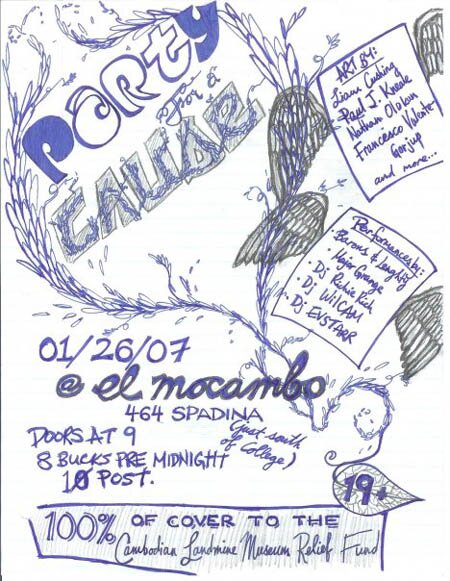 Party
For a
CAUSE
ART BY:
Liam Cushing
Paul J. Kneale
Nathan Olokun
Francesco Valente
Gorjup
and more...
Performances by:
Barons & Laughing
Hugo Grange
• Dj Richie Rich
• Dj WilCAM
• Dj EVSTARR
01/26/07
@ el mocambo
464 SPADINA
(just south
of College)
DOORS AT 9
8 BUCKS PRE MIDNIGHT
10 POST.
19+
100% OF COVER TO THE
Cambodian Landmine Museum Relief Fund